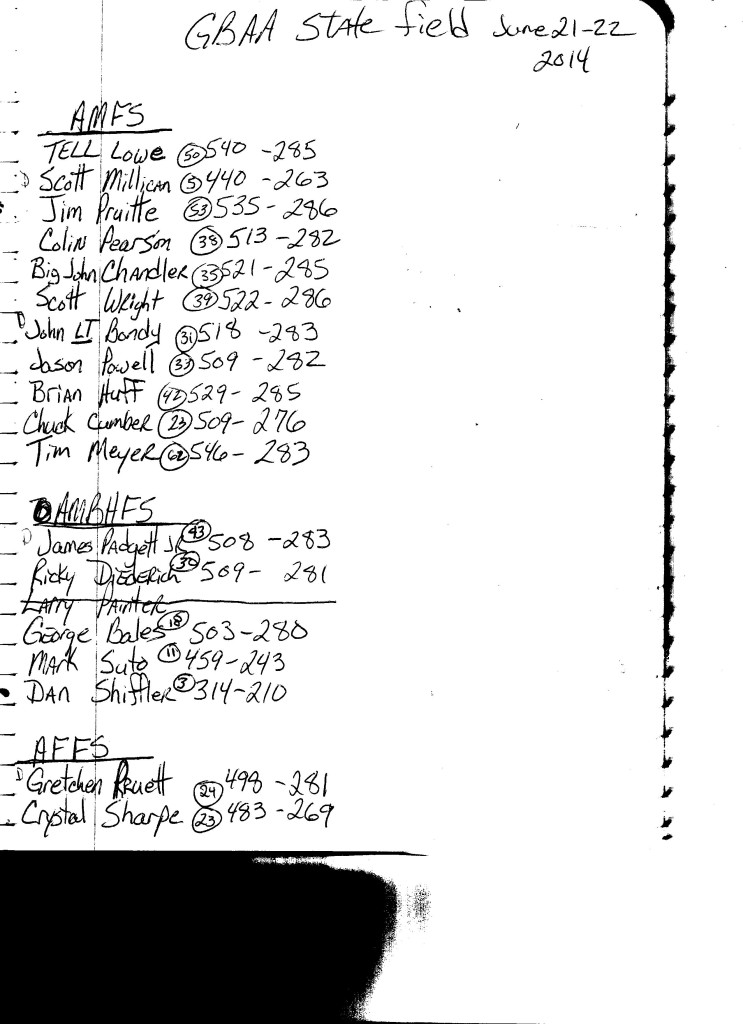 GBAA State field June 21-22
2014
AMFS
TELL Lowe 50 540 - 285
D Scott Millican 5 440 - 263
Jim Pruitte 53 535 - 286
Colin Pearson 38 513 - 282
Big John Chandler 33 521 - 285
Scott Wright 39 522 - 286
D John LT Bondy 31 518 - 283
Jason Powell 33 509 - 282
Brian Huff 42 529 - 285
Chuck Cumber 23 509 - 276
Tim Meyer 62 546 - 283
AMBHFS
D James Padgett JR 43 508 - 283
Ricky Diederich 509 - 281
Larry Painter
George Bales 18 503 - 280
Mark Suto 11 459 - 243
Dan Shiffler 3 314 - 210
AFFS
D Gretchen Pruett 24 498 - 281
Crystal Sharpe 23 483 - 269